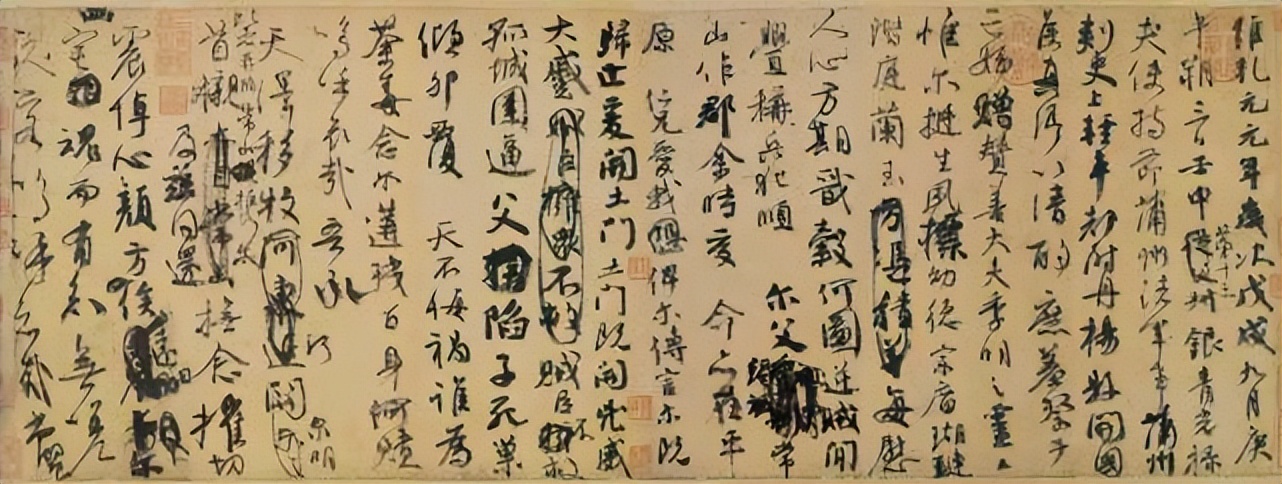 維乾元元年歲次戊戌九月庚
午朔三日壬申第十三叔銀青光祿
夫使持節蒲州諸軍事蒲州
刺史上輕車都尉丹楊縣開國
侯真卿以清酌庶羞祭于
亡姪贈贊善大夫季明之靈曰
惟爾挺生夙標幼德宗廟瑚璉
階庭蘭玉方憑積善每慰
人心方期戩穀何圖逆賊閒
釁稱兵犯順爾父竭誠常
山作郡余時受命亦在平
原仁兄愛我俾爾傳言爾既
歸止爰開土門土門既開兇威
大蹙賊臣擁眾不救賊臣不救
孤城圍逼父陷子死巢
傾卵覆天不悔禍誰為
荼毒念爾遘殘百身何贖
嗚呼哀哉吾承
天澤移牧河東近河關泉明
比者再陷常山攜爾
首櫬及茲同還撫念摧切
震悼心顏方俟遠日卜爾
宅魂而有知無嗟
久客嗚呼哀哉尚饗